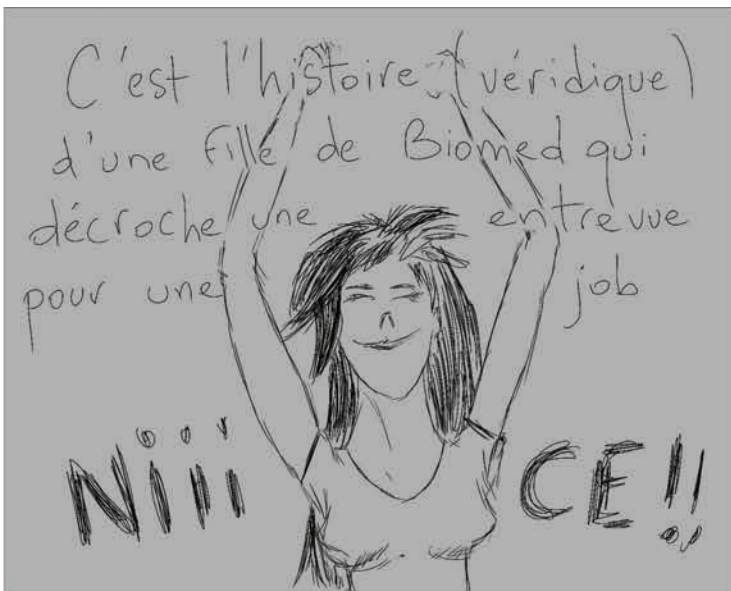 C'est l'histoire (véridique)
d'une fille de Biomed qui
décroche une entrevue
pour une job
Niii CE!!